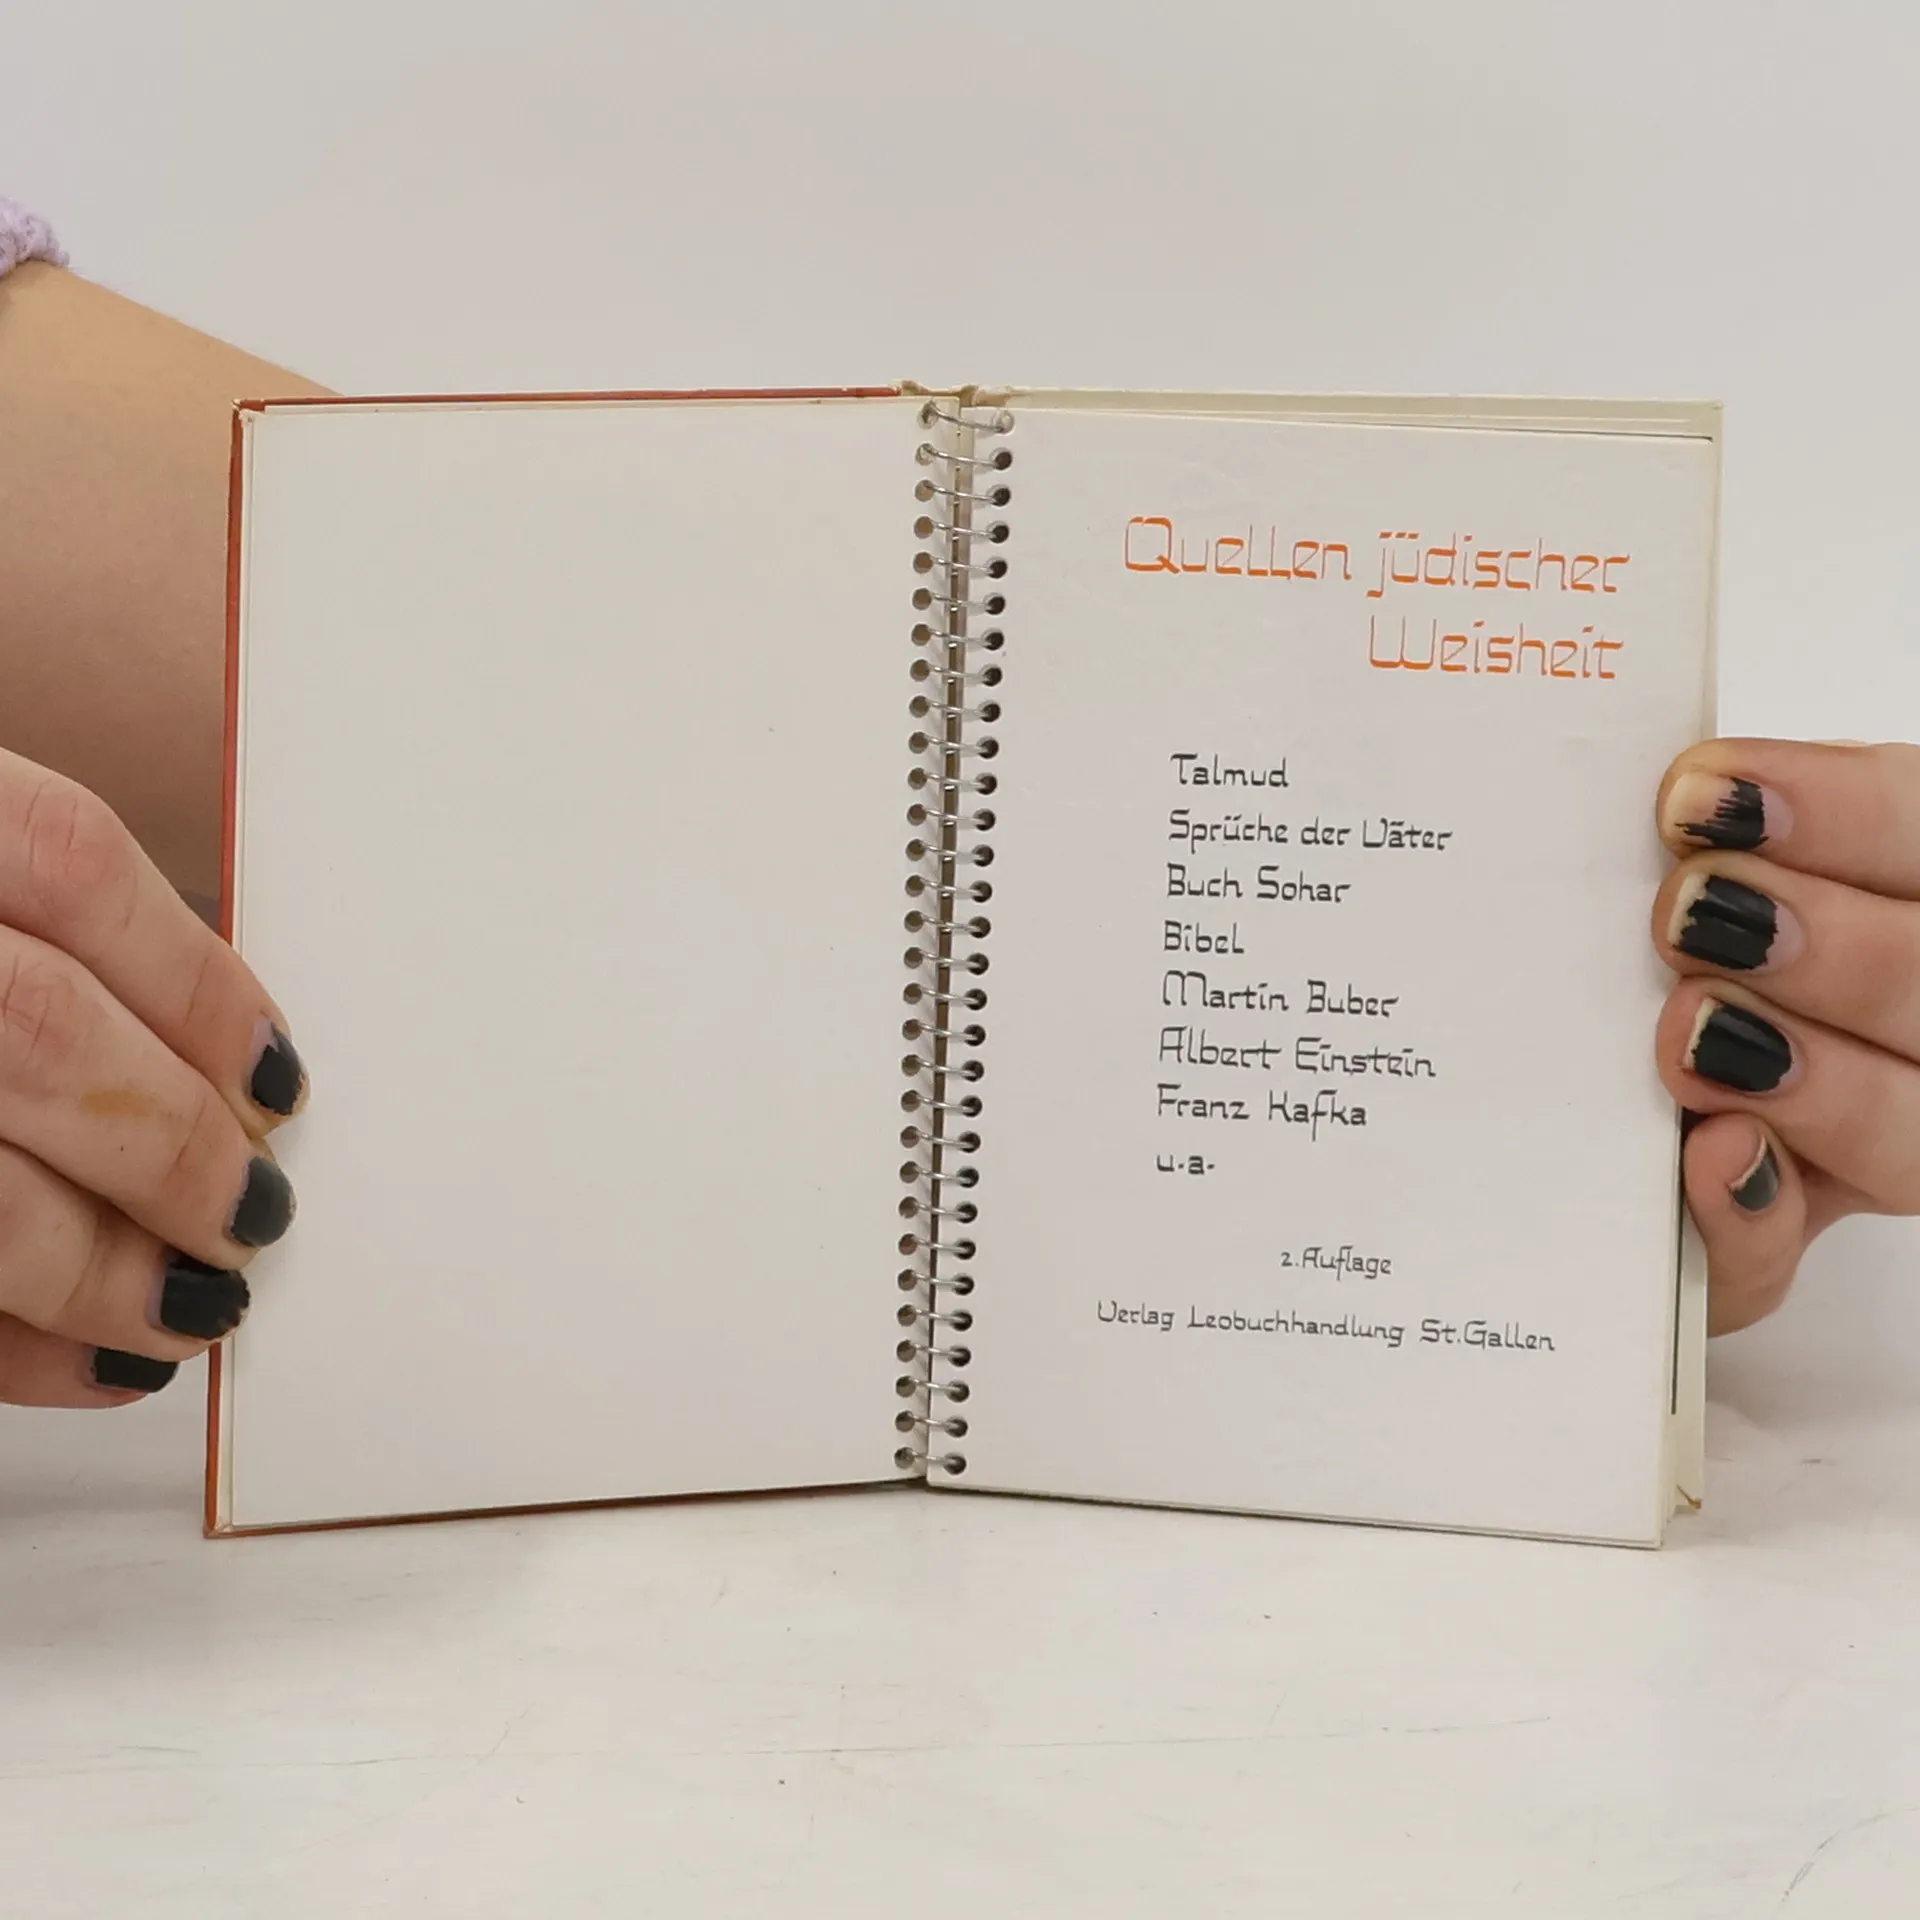 Quellen jüdischer
Weisheit
Talmud
Sprüche der Väter
Buch Sohar
Bibel
Martin Buber
Albert Einstein
Franz Kafka
u.a.
2. Auflage
Verlag Leobuchhandlung St. Gallen